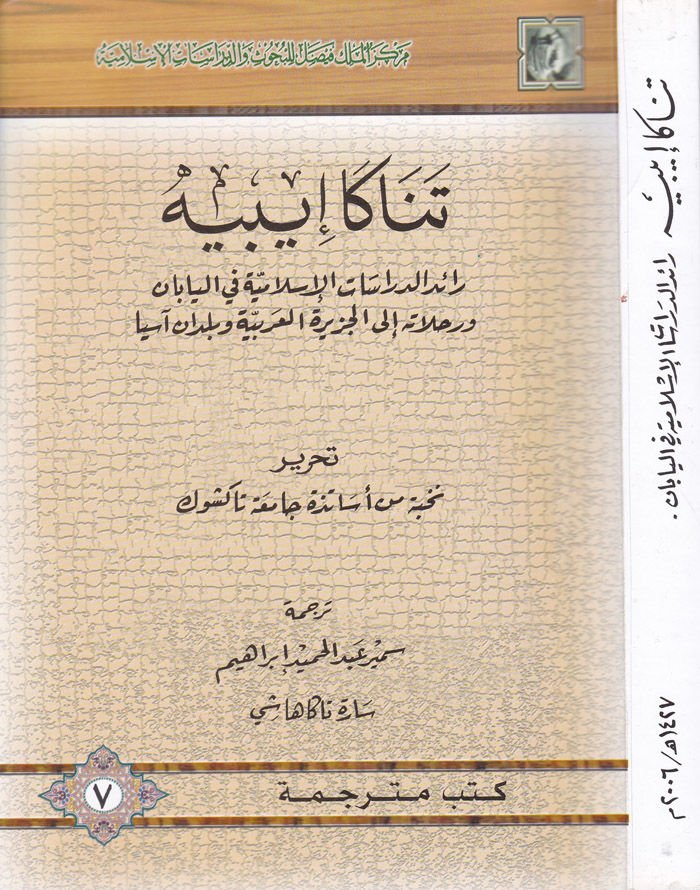 مركز الملك فيصل للبحوث والدراسات الإسلامية
تَنَاكَا إيبيه
رائد الدراسات الإسلاميّة في اليابان
ورحلاته إلى الجزيرة العربيّة وبلدان آسيا
تحرير
نخبة من أساتذة جامعة تاكشوك
ترجمة
سمير عبد الحميد إبراهيم
سارة تاكاهاشي
كتب مترجمة
٧
تناكا إيبيه
رائد الدراسات الإسلامية في اليابان.
١٤٢٧هـ/٢٠٠٦م